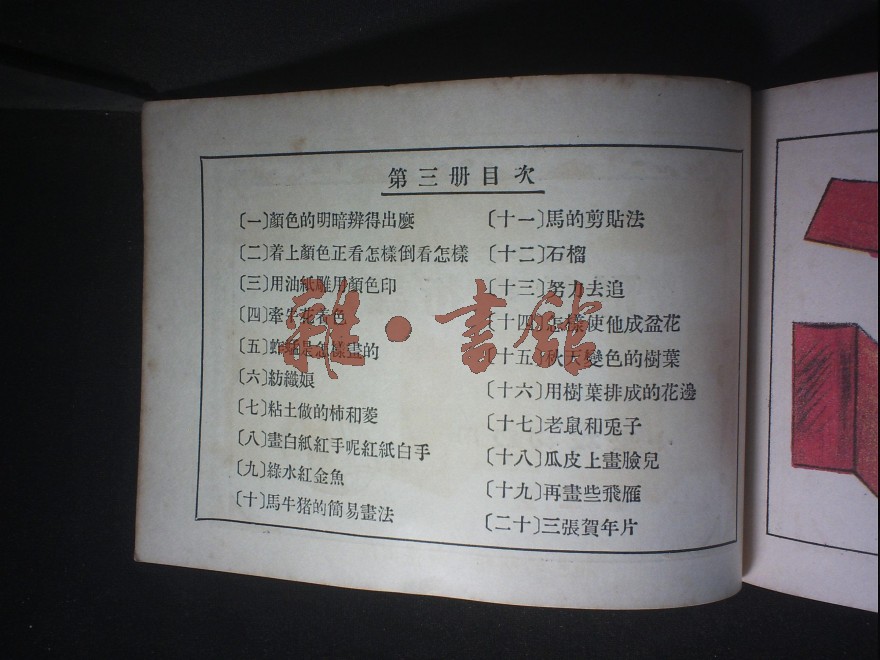 第三册目次
〔一〕顏色的明暗辨得出麼
〔二〕着上顏色正看怎樣倒看怎樣
〔三〕用油紙雕用顏色印
〔四〕牽牛花着色
〔五〕蚱蜢是怎樣畫的
〔六〕紡織娘
〔七〕粘土做的柿和菱
〔八〕畫白紙紅手呢紅紙白手
〔九〕綠水紅金魚
〔十〕馬牛猪的簡易畫法
〔十一〕馬的剪貼法
〔十二〕石榴
〔十三〕努力去追
〔十四〕怎樣使他成盆花
〔十五〕秋天變色的樹葉
〔十六〕用樹葉排成的花邊
〔十七〕老鼠和兎子
〔十八〕瓜皮上畫臉兒
〔十九〕再畫些飛雁
〔二十〕三張賀年片
雜·書館